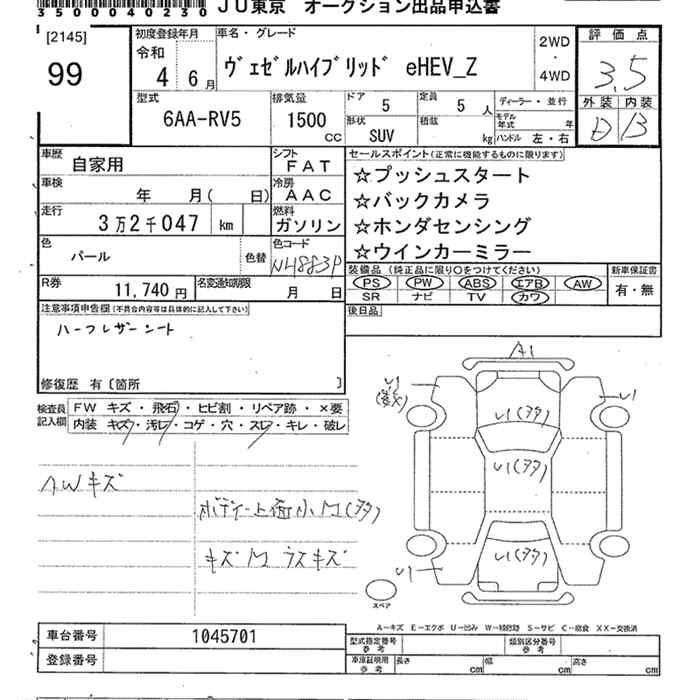 3500040230 JU東京 オークション出品申込書
[2145]
99
初度登録年月
令和
4 6月
車名・グレード
ヴェゼルハイブリッド eHEV_Z
2WD
・
4WD
評価点
3.5
外装 内装
D B
型式
6AA-RV5
排気量
1500
CC
ドア 5
定員 5 人
形状 SUV
積載 kg
ディーラー・並行
モデル年式 年
ハンドル 左・右
車歴 自家用
シフト FAT
車検 年 月( 日)
冷房 AAC
走行 3万2千047 km
燃料 ガソリン
色 パール 色替
色コード NH883P
R券 11,740円
名変通知期限 月 日
セールスポイント(正常に機能するものに限ります)
☆プッシュスタート
☆バックカメラ
☆ホンダセンシング
☆ウインカーミラー
装備品 (純正品に限り○をつけてください)
PS PW ABS エアB AW
SR ナビ TV カワ
新車保証書
有・無
後日品
注意事項申告欄(不具合内容等は具体的に記入して下さい)
ハーフレザーシート
修復歴 有〔箇所 〕
検査員記入欄
FW キズ・飛石・ヒビ割・リペア跡・×要
内装 キズ・汚レ・コゲ・穴・スレ・キレ・破レ
AWキズ
ボディー上面小凹(多)
キズ凹ラスキズ
A1
U1
U1
U1(多)
U1(多)
U1(多)
U1
スペア
A―キズ E―エクボ U―凹み W―補修跡 S―サビ C―腐食 XX―交換済
車台番号 1045701
登録番号
型式指定番号 参考
類別区分番号 参考
車庫証明用 参考
長さ cm
幅 cm
高さ cm